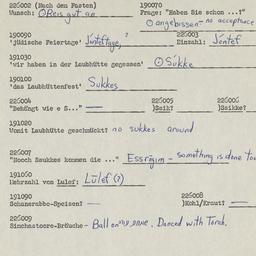 226002 (Nach dem Fasten)
Wunsch: O Reis gut an
190070
Frage: "Haben Sie schon ...?"
O angebissen - no acceptance
190090
'jüdische Feiertage' Jonteftage, ?
226003
Einzahl: Jontef
191030
'wir haben in der Laubhütte gegessen' O Sukke
190100
'das Laubhüttenfest' Sukkes
226004
"Behängt wie e S..." —
226005
)Seik?
226006
)Seikke?
191020
Womit Laubhütte geschmückt? no sukkes around
226007
"Nooch Sukkes kommen die ..." Essrojim - something is done too
191060
Mehrzahl von Lulef: Lulef (?)
191090
Schanerabbo-Speisen? —
226008
)Kohl/Kraut? —
226009
Simchastoore-Bräuche - Ball on done. Danced with Torah.